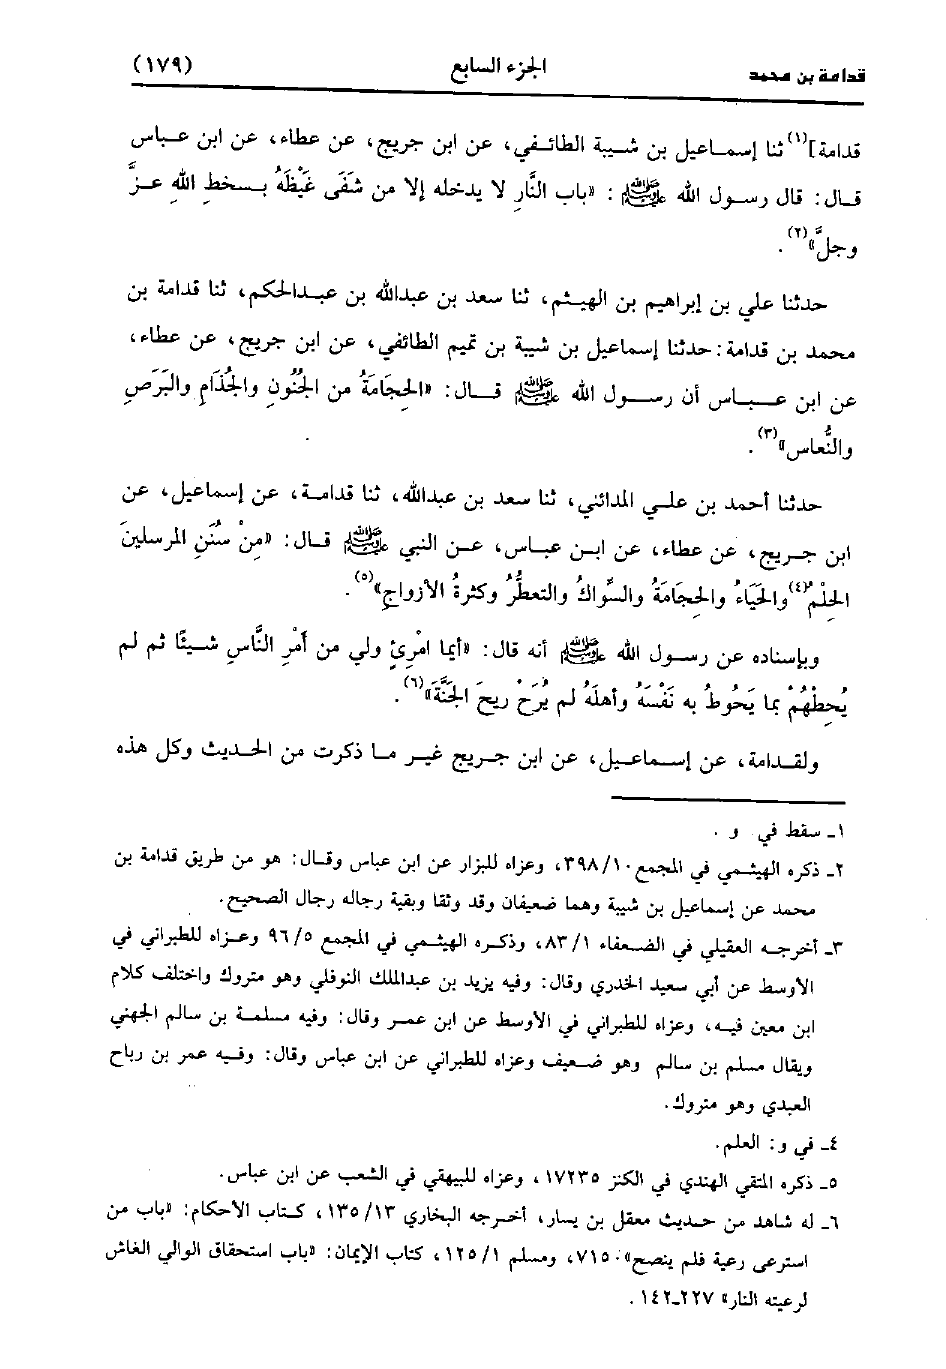 قدامة بن محمد الجزء السابع (١٧٩)
قدامة](١) ثنا إسماعيل بن شيبة الطائفي، عن ابن جريج، عن عطاء، عن ابن عباس
قال: قال رسول الله ﷺ : «باب النَّارِ لا يدخله إلا من شَفَى غَيْظَهُ بسخطِ اللهِ عزَّ
وجلَّ»(٢).
حدثنا علي بن إبراهيم بن الهيثم، ثنا سعد بن عبدالله بن عبدالحكم، ثنا قدامة بن
محمد بن قدامة: حدثنا إسماعيل بن شيبة بن تميم الطائفي، عن ابن جريج، عن عطاء،
عن ابن عباس أن رسول الله ﷺ قال: «الحِجَامَةُ من الجُنُونِ والجُذَامِ والبَرَصِ
والنُّعاس»(٣).
حدثنا أحمد بن علي المدائني، ثنا سعد بن عبدالله، ثنا قدامة، عن إسماعيل، عن
ابن جريج، عن عطاء، عن ابن عباس، عن النبي ﷺ قال: «مِنْ سُنَنِ المرسلينَ
الحِلْمُ(٤) والحَيَاءُ والحِجَامَةُ والسِّواكُ والتعطُّرُ وكثرةُ الأزواجِ»(٥).
وبإسناده عن رسول الله ﷺ أنه قال: «أيما امْرِئٍ ولي من أَمْرِ النَّاسِ شيئًا ثم لم
يُحِطْهُمْ بما يَحُوطُ به نَفْسَهُ وأهلَهُ لم يُرَحْ ريحَ الجَنَّةَ»(٦).
ولقدامة، عن إسماعيل، عن ابن جريج غير ما ذكرت من الحديث وكل هذه
١ـ سقط في و .
٢ـ ذكره الهيثمي في المجمع ٣٩٨/١٠، وعزاه للبزار عن ابن عباس وقال: هو من طريق قدامة بن
محمد عن إسماعيل بن شيبة وهما ضعيفان وقد وثقا وبقية رجاله رجال الصحيح.
٣ـ أخرجه العقيلي في الضعفاء ٨٣/١، وذكره الهيثمي في المجمع ٩٦/٥ وعزاه للطبراني في
الأوسط عن أبي سعيد الخدري وقال: وفيه يزيد بن عبدالملك النوفلي وهو متروك واختلف كلام
ابن معين فيه، وعزاه للطبراني في الأوسط عن ابن عمر وقال: وفيه مسلمة بن سالم الجهني
ويقال مسلم بن سالم وهو ضعيف وعزاه للطبراني عن ابن عباس وقال: وفيه عمر بن رباح
العبدي وهو متروك.
٤ـ في و: العلم.
٥ـ ذكره المتقي الهندي في الكنز ١٧٢٣٥، وعزاه للبيهقي في الشعب عن ابن عباس.
٦ـ له شاهد من حديث معقل بن يسار، أخرجه البخاري ١٣٥/١٣، كتاب الأحكام: «باب من
استرعى رعية فلم ينصح» ٧١٥٠، ومسلم ١٢٥/١، كتاب الإيمان: «باب استحقاق الوالي الغاش
لرعيته النار» ٢٢٧ـ١٤٢.